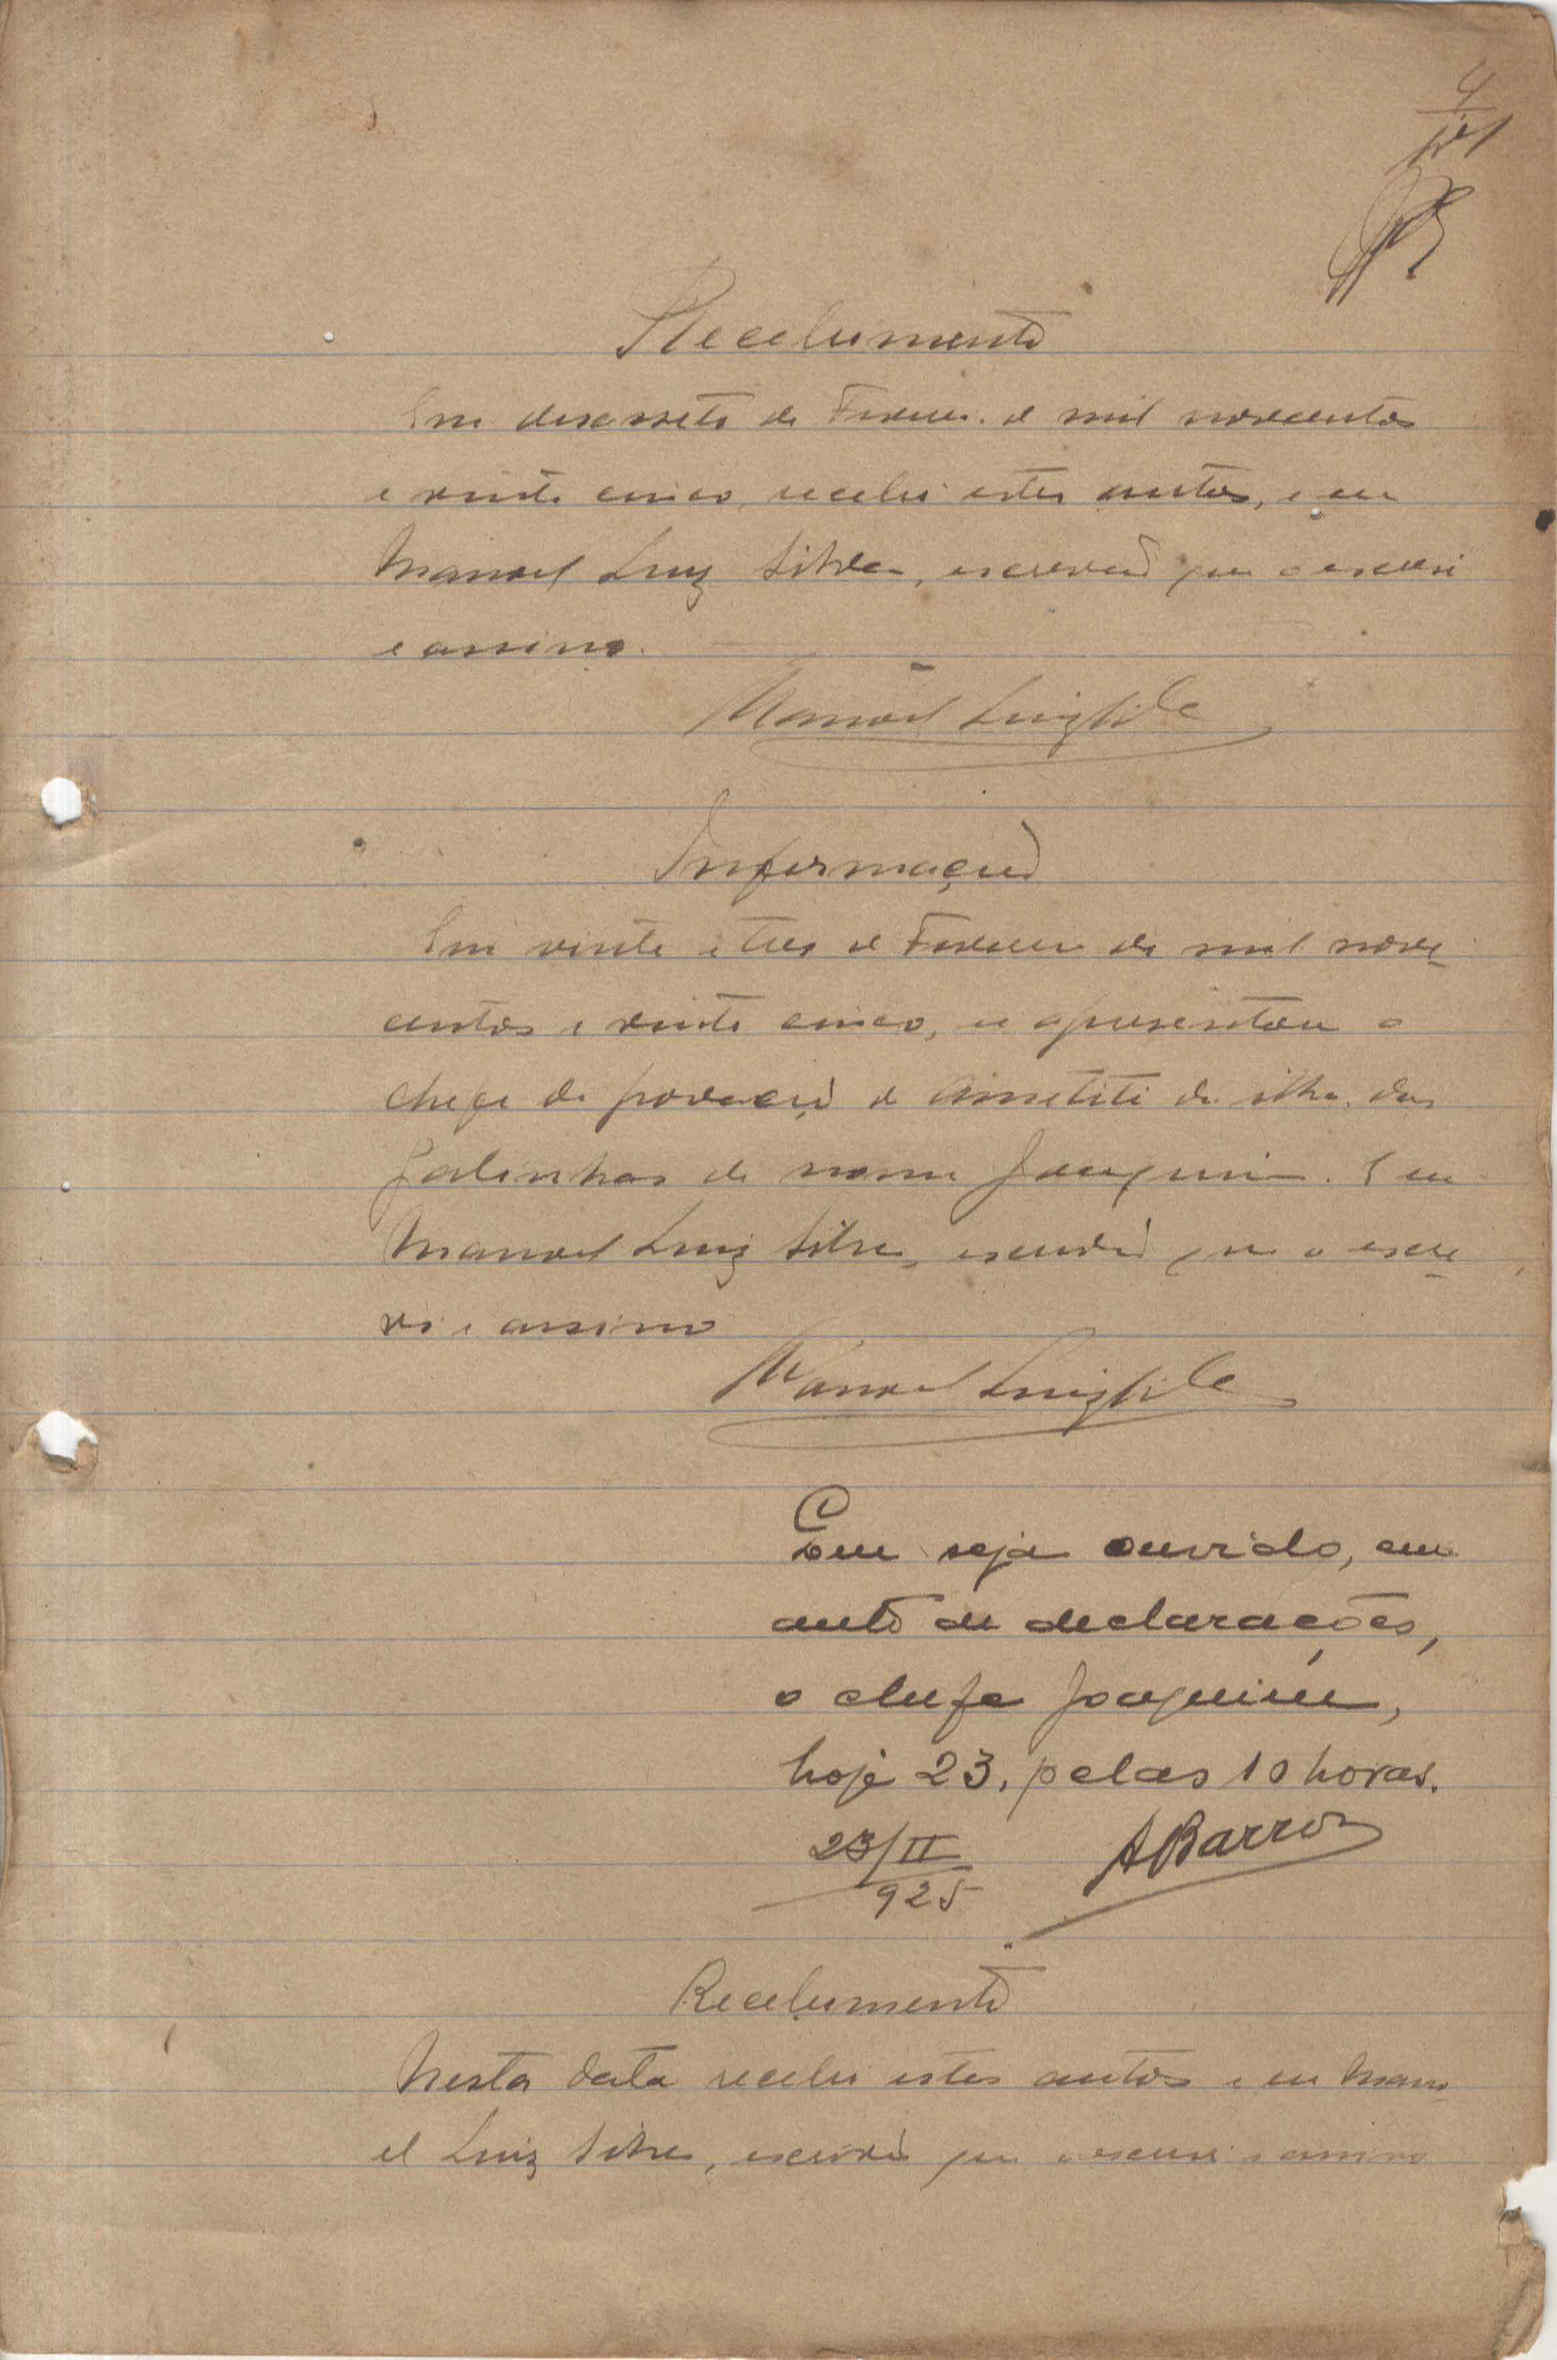 4
Recebimento
Em desassete de Fever. de mil novecentos
e vinte cinco, recebi estes autos, e eu
Manoel Luiz Silva, escrivão que o escrevi
e assino.
Manoel Luiz Silva
Informação
Em vinte e tres de Fevereiro de mil nove
centos e vinte cinco, se apresentou o
chefe da povoação de da ilha das
Galinhas de nome Joaquim. E eu
Manoel Luiz Silva, escrivão que o escre
vi e assino
Manoel Luiz Silva
Que seja ouvido, em
auto de declarações,
o chefe Joaquim,
hoje 23, pelas 10 horas.
23/II
925
ABarros
Recebimento
Nesta data recebi estes autos e eu Mano
el Luiz Silva, escrivão que o escrevi e assino